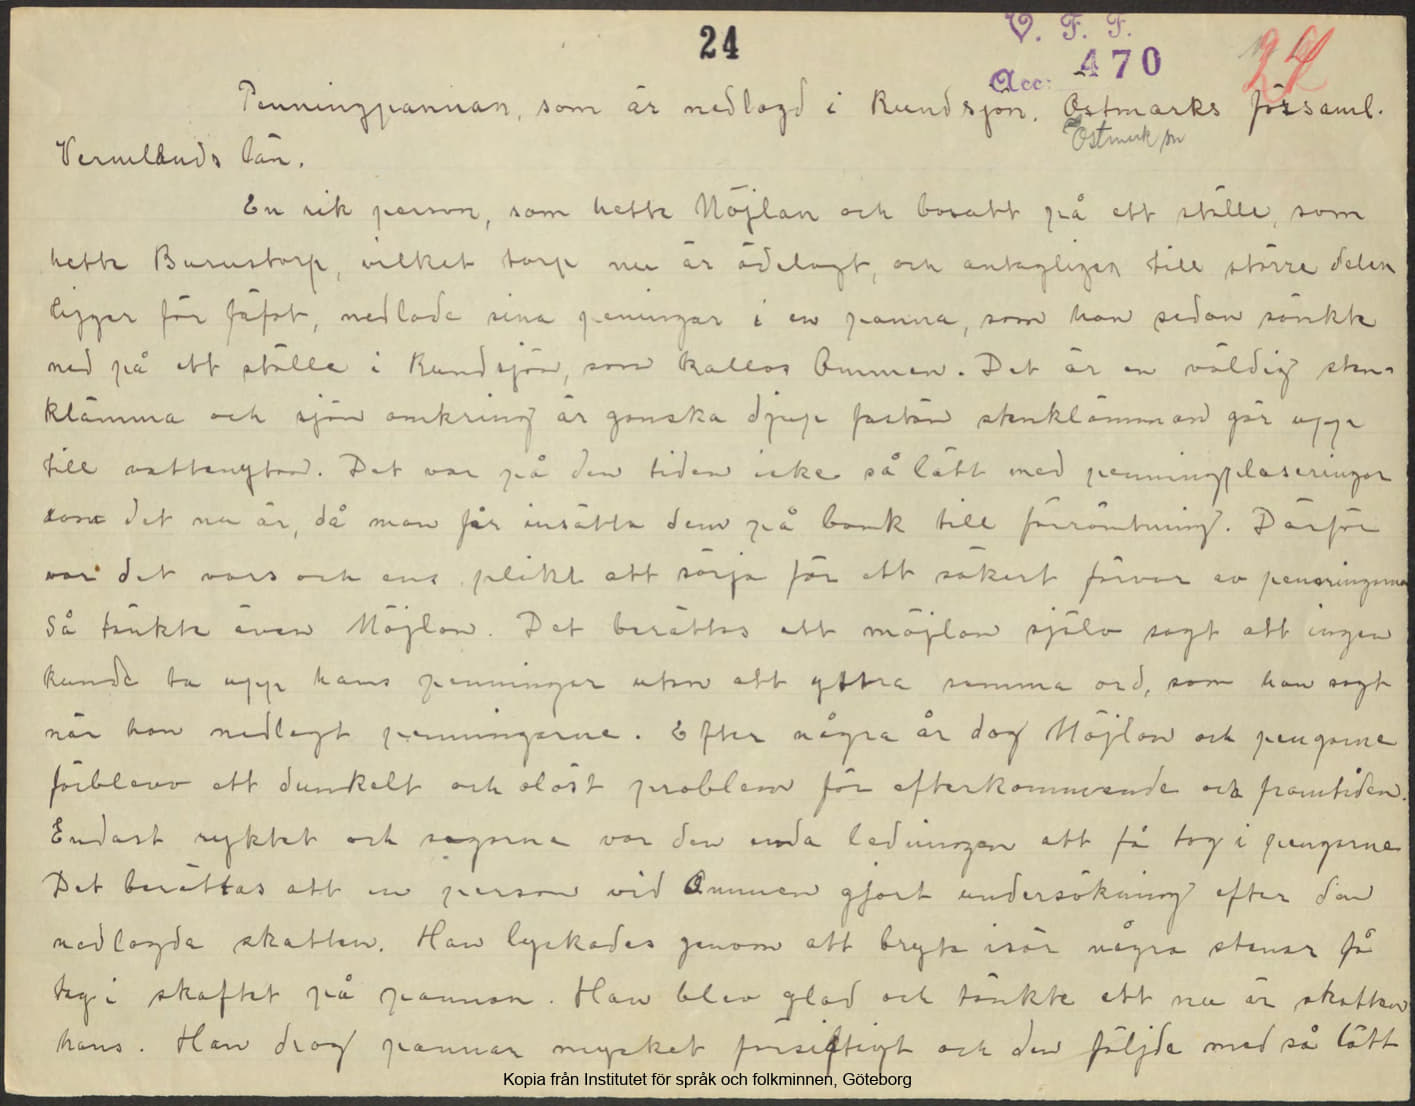 24
V. F. F.
Acc: 470
24
Penningpannan, som är nedlagd i Rundsjön, Östmarks församl.
Östmark sn
Vermlands län.
En rik person, som hette Nöjlan och bosatt på ett ställe, som
hette Burustorp, vilket torp nu är ödelagt, och antagligen till större delen
ligger för fäfot, nedlade sina peningar i en panna, som han sedan sänkte
ned på ett ställe i Rundsjön, som kallas Ommen. Det är en väldig sten-
klämma och sjön omkring är ganska djup fastän stenklämman går upp
till vattenytan. Det var på den tiden icke så lätt med penningplaseringar
som det nu är, då man får insätta dem på bank till förräntning. Därför
var det vars och ens plikt att sörja för ett säkert förvar av penningarna
Så tänkte även Nöjlan. Det berättas att nöjlan själv sagt att ingen
kunde ta upp hans penningar utan att yttra samma ord, som han sagt
när han nedlagt penningarne. Efter några år dog Nöjlan och pengarne
förblevo ett dunkelt och olöst problem för efterkommande och framtiden.
Endast ryktet och sagorna var den enda ledningen att få tag i pengarne
Det berättas att en person vid Ommen gjort undersökning efter den
nedlagda skatten. Han lyckades genom att bryta isär några stenar få
tag i skaftet på pannan. Han blev glad och tänkte att nu är skatten
hans. Han drog pannan mycket försiftigt och den följde med så lätt
Kopia från Institutet för språk och folkminnen, Göteborg